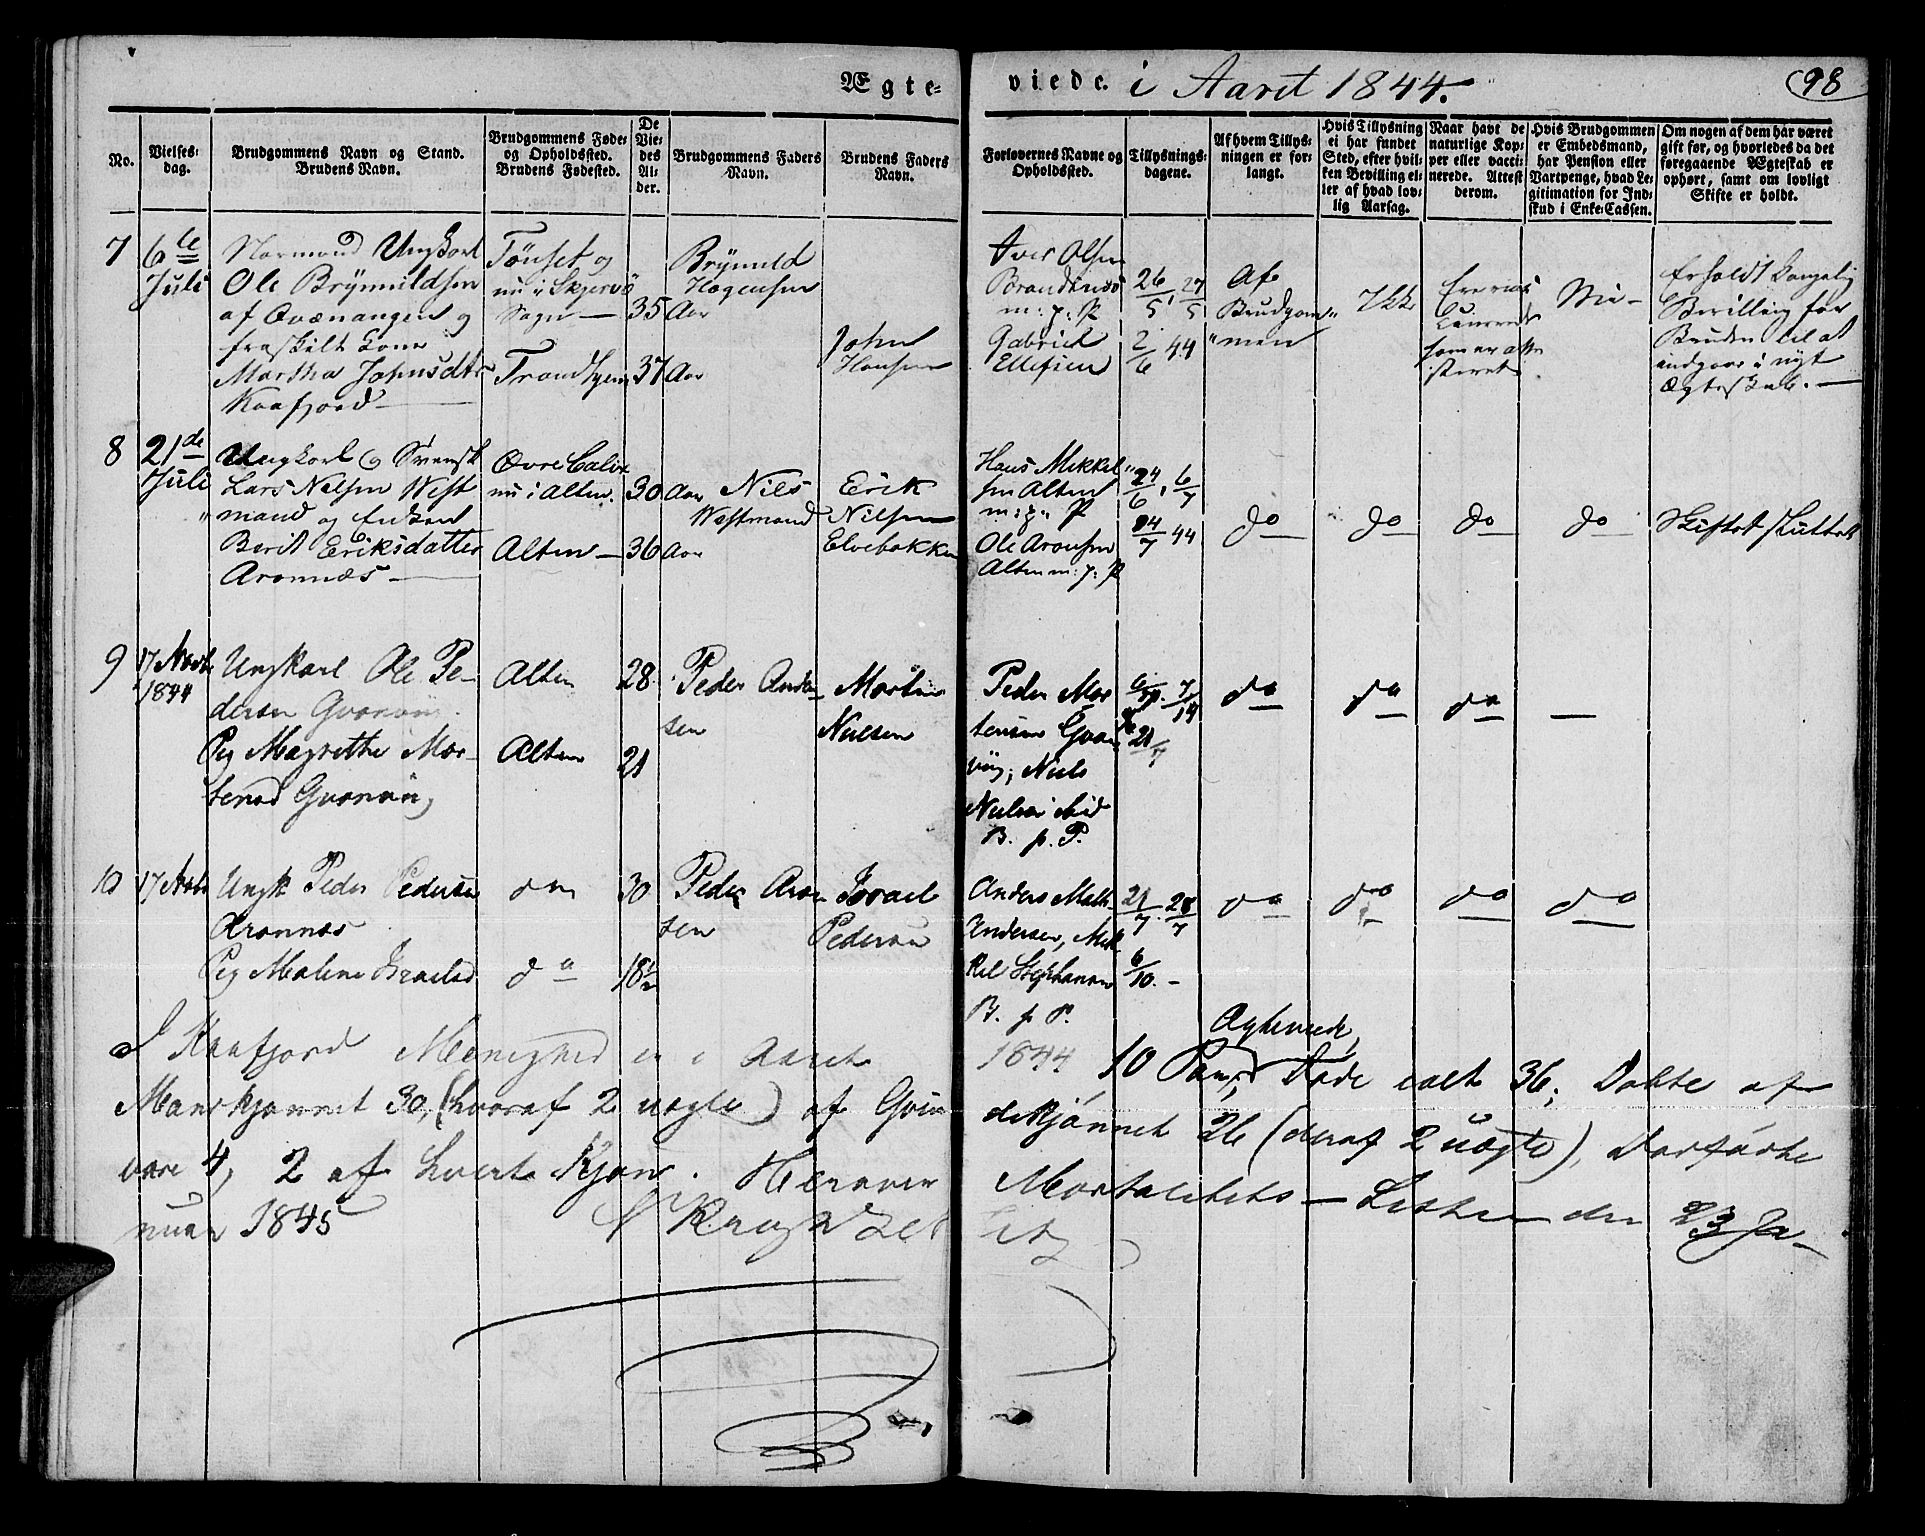 Ægteviede. i Aaret 1844.
98
No.
Vielses-
dag.
Brudgommens Navn og Stand.
Brudens Navn.
Brudgommens Føde-
og Opholdssted.
Brudens Fødested.
De
Vie-
des
Al-
der.
Brudgommens Faders
Navn.
Brudens Faders
Navn.
Forlovernes Navne og
Opholdssted.
Tillysnings-
dagene.
Af hvem Tillys-
ningen er for-
langt.
Hvis Tillysning
ei har fundet
Sted, efter hvil-
ken Bevilling el-
ler af hvad lov-
lig Aarsag.
Naar havt de
naturlige Kop-
per eller vacci-
nerede. Attest
derom.
Hvis Brudgommen
er Embedsmand,
har Pension eller
Vartpenge, hvad Le-
gitimation for Ind-
skud i Enke-Cassen.
Om nogen af dem har været
gift før, og hvorledes da det
foregaaende Ægteskab er
ophørt, samt om lovligt
Skifte er holdt.
7
6te
Juli
Normand Ungkarl
Ole Brynnildsen
af Qvænangen og
fraskilt Kone
Martha Johnsdtr
Kaafjord
Tønset og
nu i Skjervø
Sogn
Trondhjem
35 Aar
37 Aar
Brynnild
Hagensen
John
Hansen
Iver Olsen
m: p: P
Gabriel
Ellefsen
26/5, 27/5
2/6 44
Af
Brudgom-
men
Ikke
som er atte-
steret
Nei
Erholdt kongelig
Bevilling for
Bruden til at
indgaae i nyt
Ægteskab.
8
21de
Juli
Ungkarl og Svensk
Lars Nilsen West-
mand og Enken
Berit Eriksdatter
Aronnæs
Øvre Calix
nu i Alten.
Alten
30 Aar
36 Aar
Nils
Westmand
Erik
Nilsen
Elvebakken
Hans Mikkel-
sen Alten
m: p: P
Ole Aronsen
Alten m: p: P
24/6, 6/7
14/7 44
do
do
do
do
Skiftet sluttet
9
17 Novbr
1844
Ungkarl Ole Pe-
dersen
Pig Magrethe Mor-
Alten
Alten
28
21
Peder Ander-
sen
Morten
Nielsen
Peder Mor-
tensen
Niels
Nielsen
B. p. P.
21/7
do
do
do
10
17 Novbr
Ungk Peder Pedersen
Aronnæs
Pig Malene Israelsd
do
do
30
18½
Peder Aron-
sen
Israel
Pedersen
Anders Math.
Andersen, Mik-
kel Stephansen
B. p. P.
21/7. 28/7
6/10.
do
do
do
do
I Kaafjord Menighed er i Aaret 1844 10 Par Ægteviede, Døde ialt 36; Døbte af
Mandkjønnet 30, (hvoraf 2 uægte) af Qvin-
dekjønnet 26 (deraf 2 uægte), Dødfødte
vare 4, 2 af hvert Kjøn. Herover Mortalitets-Listen den 23 Ja-
nuar 1845